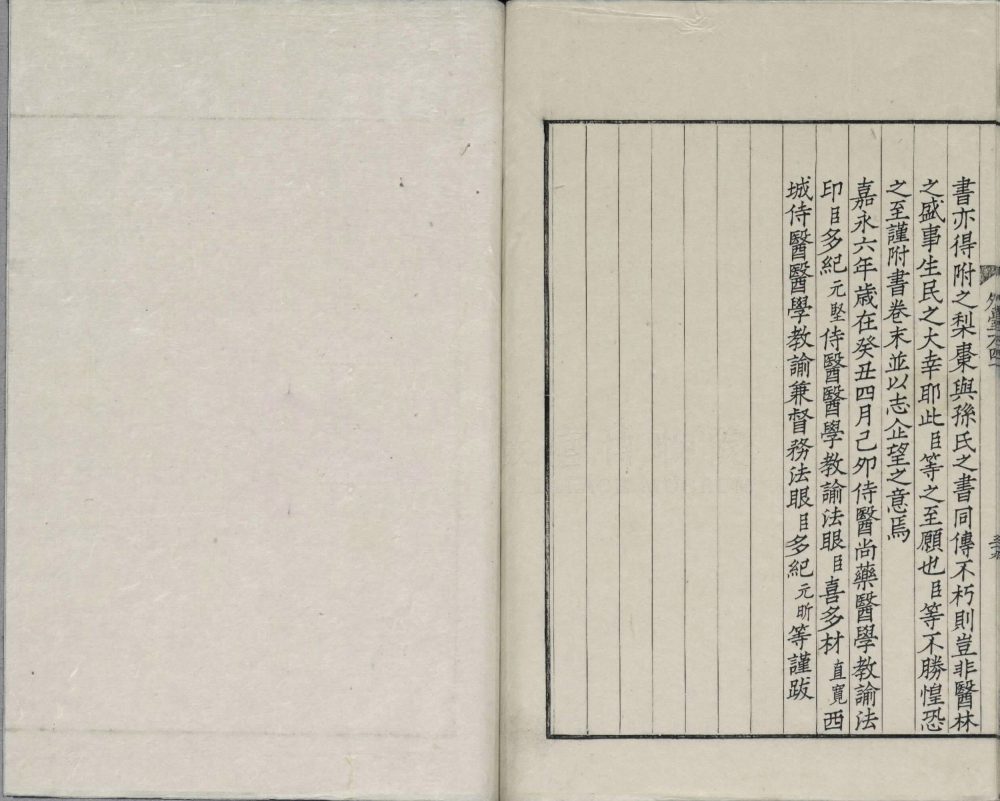 書亦得附之梨棗與孫氏之書同傳不朽則豈非醫林
之盛事生民之大幸耶此臣等之至願也臣等不勝惶恐
之至謹附書卷末並以志企望之意焉
嘉永六年歳在癸丑四月己卯侍醫尚藥醫學教諭法
印臣多紀元堅侍醫醫學教諭法眼臣喜多材直寬西
城侍醫醫學教諭兼督務法眼臣多紀元昕等謹跋